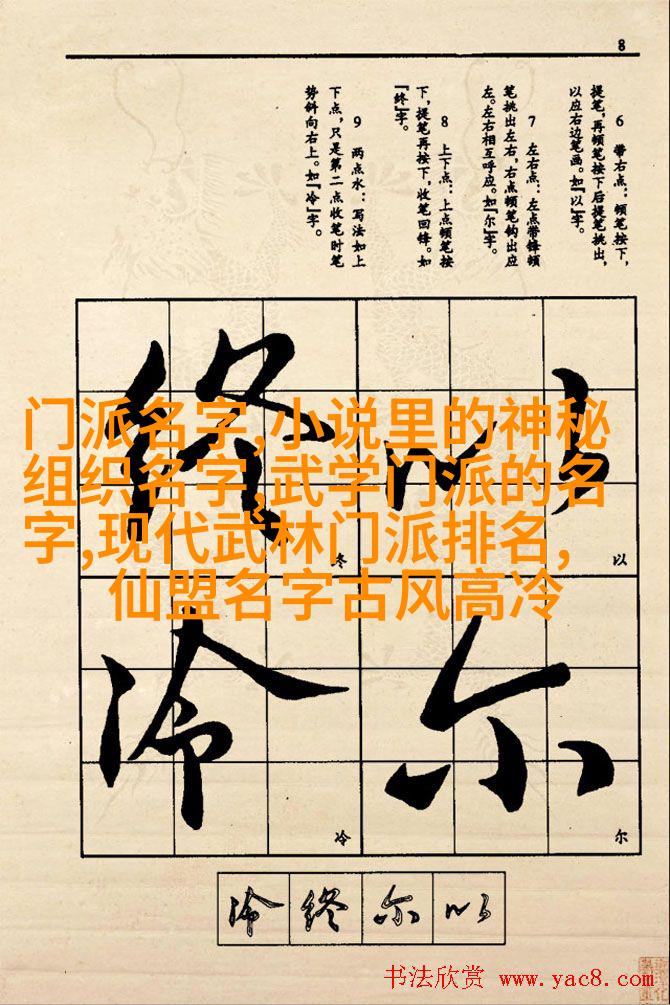 8
6 带右点：顿笔按下，
提笔，再顿笔按下后提笔挑出，
以应右边笔画。如『以』字。
7 左右点：左点带锋顿
笔挑出左右，右点顿笔钩出应
左。左右相互呼应。如『尔』字。
8 上下点：上点顿笔按
下，提笔再按下，收笔回锋。如
『终』字。
9 两点水：写法如上
下点，只是第二点收笔时笔
势斜向右上。如『冷』字。
以
终
冬
以
尔
冷
尔
冷
门派名字,小说里的神秘
组织名字,武学门派的名
字,现代武林门派排名,
仙盟名字古风高冷
冷 终 尔 以
书法欣赏 www.yac8.com